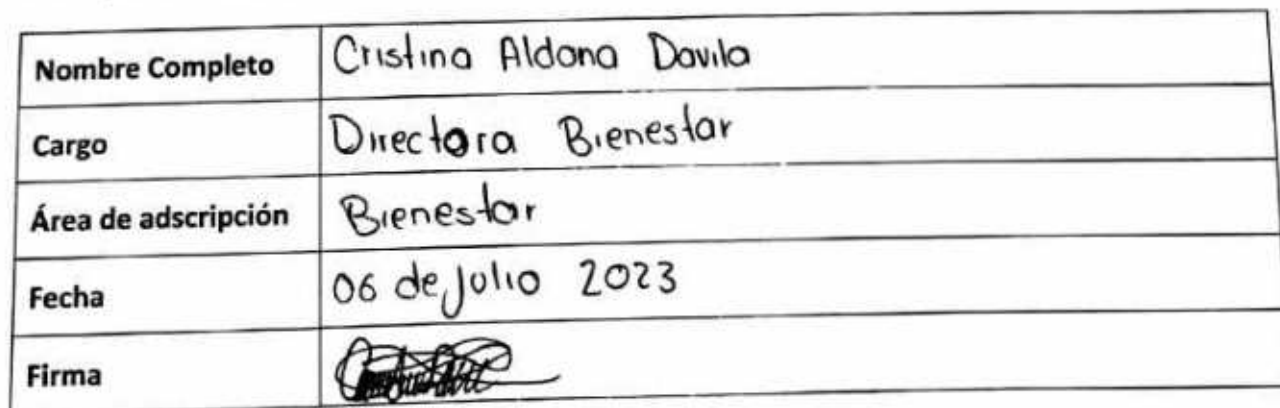 Nombre Completo Cristina Aldana Davila
Cargo Directora Bienestar
Área de adscripción Bienestar
Fecha 06 de Julio 2023
Firma